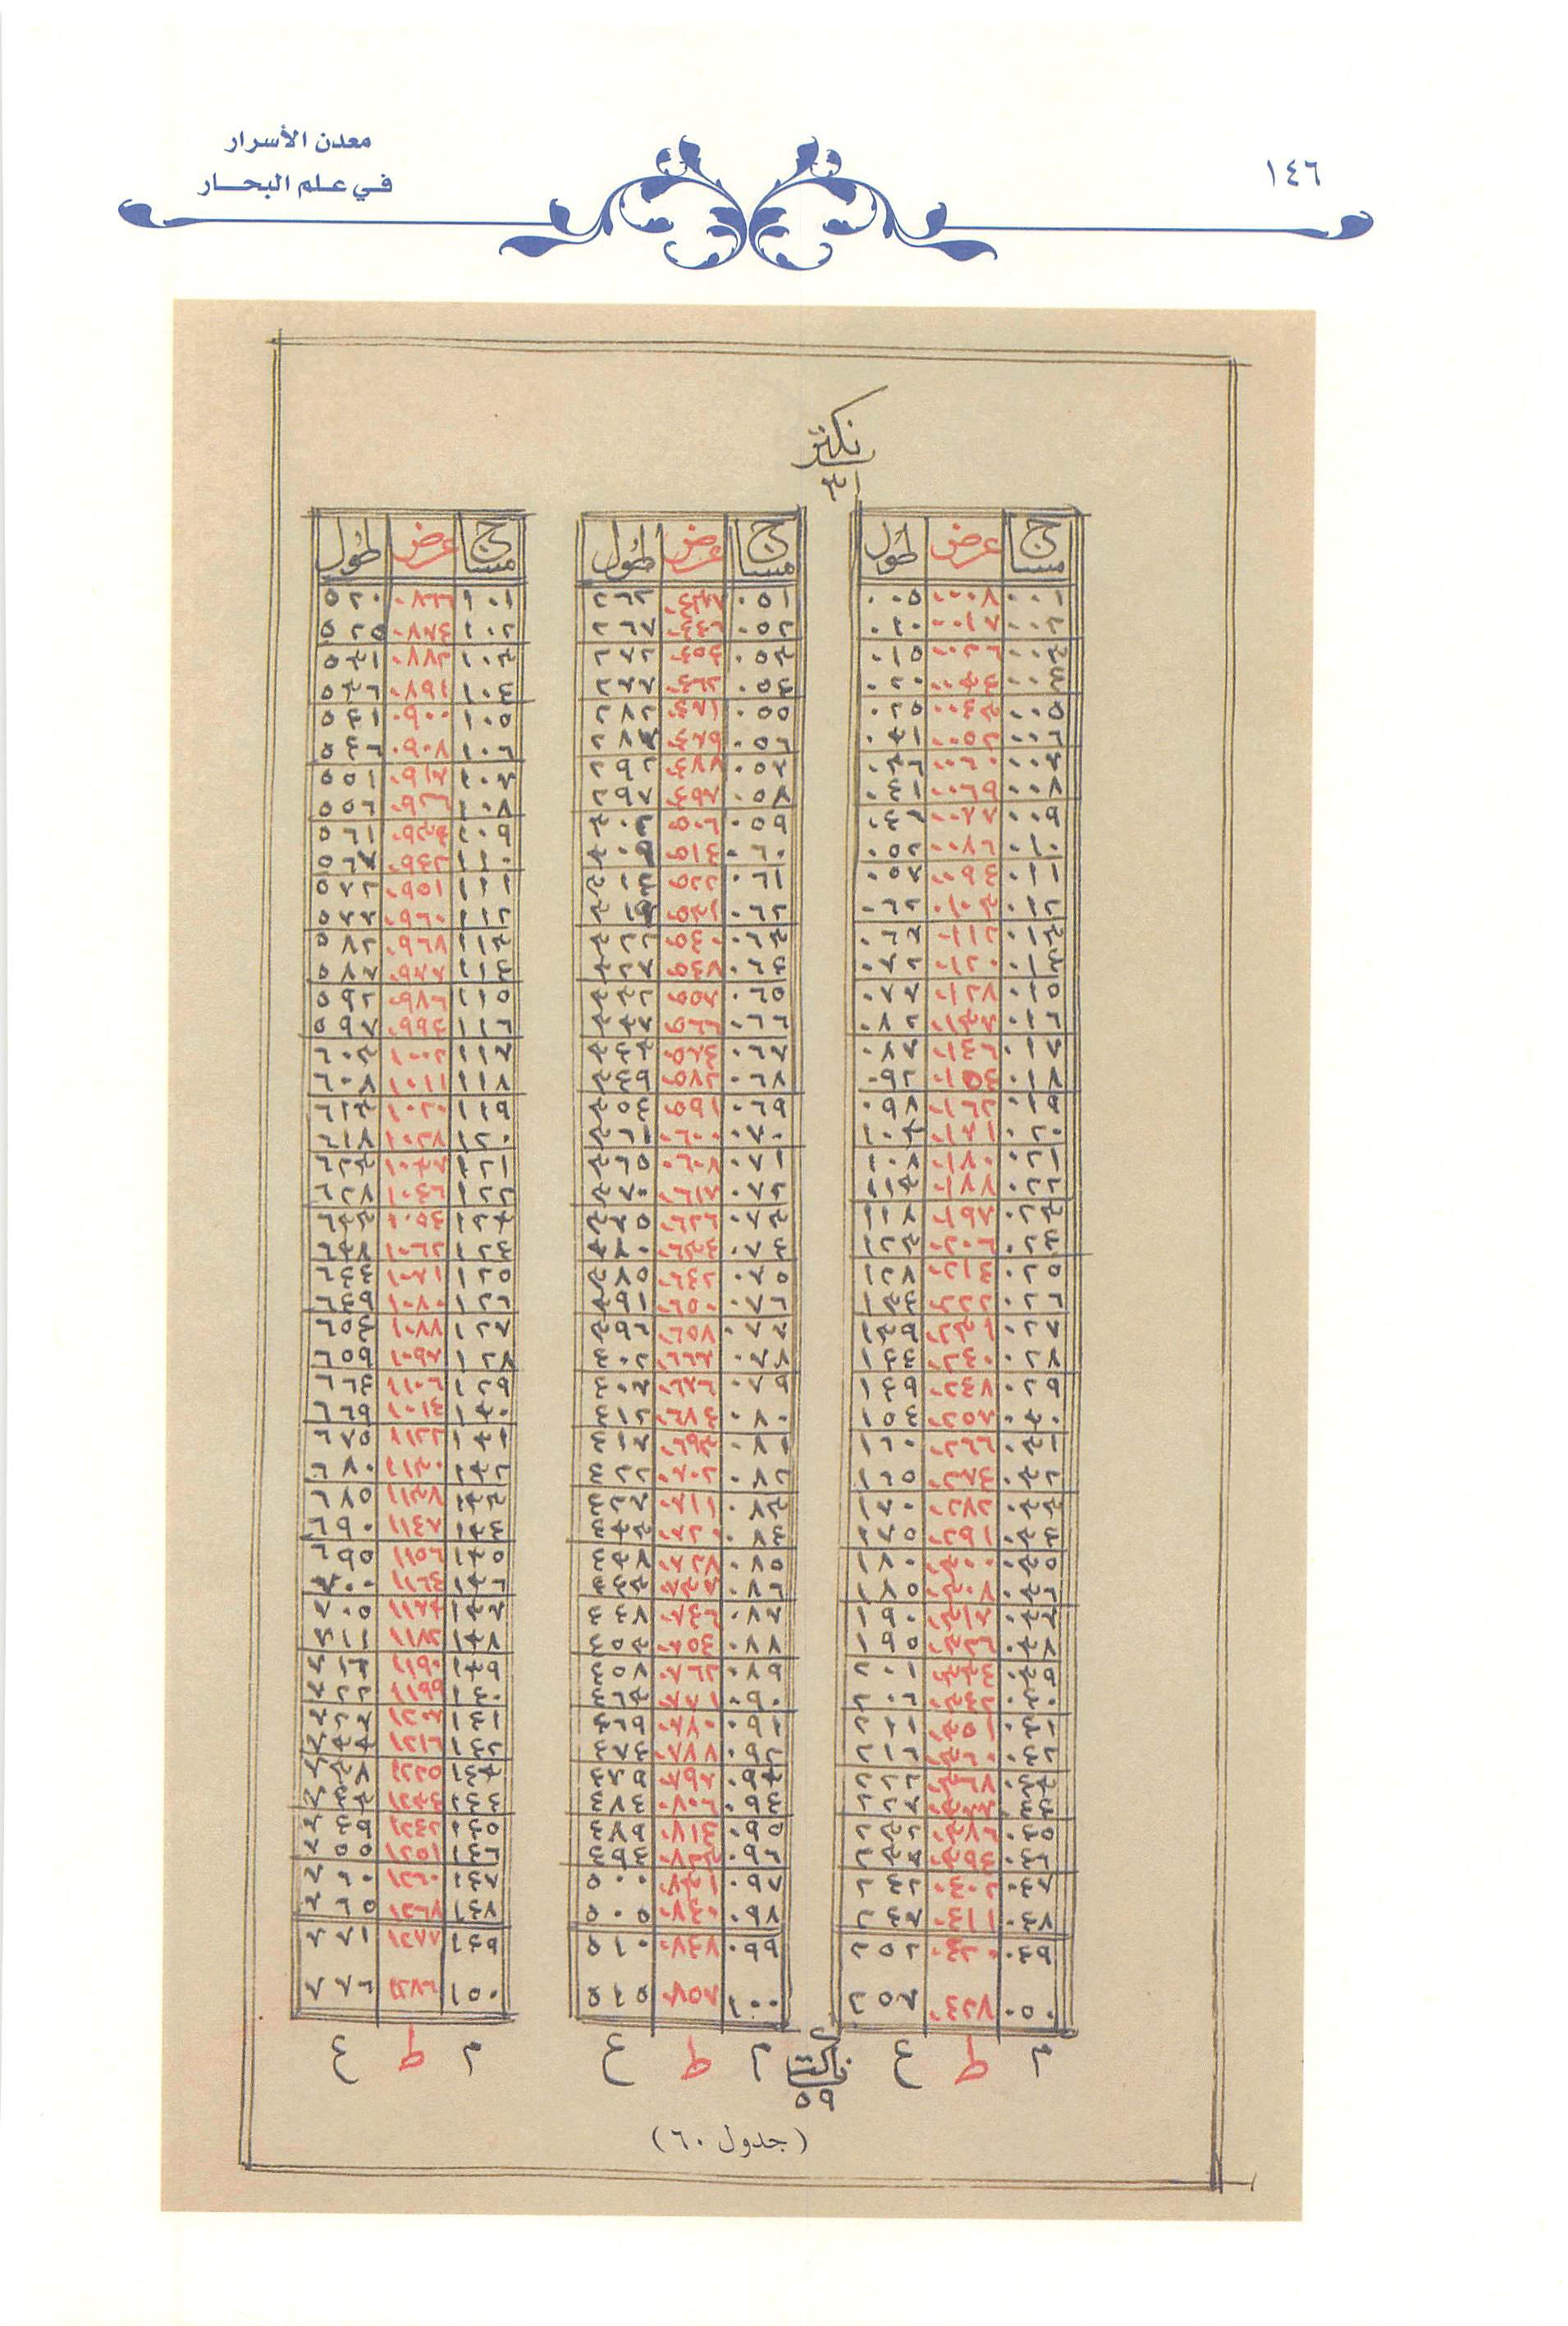 معدن الأسرار
في علم البحار
١٤٦
نكتر
٣١
مساح عرض طول
٠٠١ ٠٠٠٨ ٠٠٥
٠٠٢ ٠٠١٧ ٠١٠
٠٠٣ ٠٠٢٦ ٠١٥
٠٠٤ ٠٠٣٤ ٠٢٠
٠٠٥ ٠٠٤٣ ٠٢٥
٠٠٦ ٠٠٥٢ ٠٣١
٠٠٧ ٠٠٦٠ ٠٣٦
٠٠٨ ٠٠٦٩ ٠٤١
٠٠٩ ٠٠٧٧ ٠٤٦
٠١٠ ٠٠٨٦ ٠٥٢
٠١١ ٠٠٩٤ ٠٥٧
٠١٢ ٠١٠٣ ٠٦٢
٠١٣ ٠١١٢ ٠٦٧
٠١٤ ٠١٢٠ ٠٧٢
٠١٥ ٠١٢٨ ٠٧٧
٠١٦ ٠١٣٧ ٠٨٢
٠١٧ ٠١٤٦ ٠٨٧
٠١٨ ٠١٥٤ ٠٩٢
٠١٩ ٠١٦٢ ٠٩٨
٠٢٠ ٠١٧١ ١٠٣
٠٢١ ٠١٨٠ ١٠٨
٠٢٢ ٠١٨٨ ١١٣
٠٢٣ ٠١٩٧ ١١٨
٠٢٤ ٠٢٠٦ ١٢٣
٠٢٥ ٠٢١٤ ١٢٨
٠٢٦ ٠٢٢٢ ١٣٤
٠٢٧ ٠٢٣١ ١٣٩
٠٢٨ ٠٢٤٠ ١٤٤
٠٢٩ ٠٢٤٨ ١٤٩
٠٣٠ ٠٢٥٧ ١٥٤
٠٣١ ٠٢٦٦ ١٦٠
٠٣٢ ٠٢٧٤ ١٦٥
٠٣٣ ٠٢٨٢ ١٧٠
٠٣٤ ٠٢٩١ ١٧٥
٠٣٥ ٠٣٠٠ ١٨٠
٠٣٦ ٠٣٠٨ ١٨٥
٠٣٧ ٠٣١٧ ١٩٠
٠٣٨ ٠٣٢٦ ١٩٥
٠٣٩ ٠٣٣٤ ٢٠١
٠٤٠ ٠٣٤٢ ٢٠٦
٠٤١ ٠٣٥١ ٢١١
٠٤٢ ٠٣٦٠ ٢١٦
٠٤٣ ٠٣٦٨ ٢٢٢
٠٤٤ ٠٣٧٧ ٢٢٧
٠٤٥ ٠٣٨٦ ٢٣٢
٠٤٦ ٠٣٩٤ ٢٣٧
٠٤٧ ٠٤٠٢ ٢٤٢
٠٤٨ ٠٤١١ ٢٤٧
٠٤٩ ٠٤٢٠ ٢٥٢
٠٥٠ ٠٤٢٧ ٢٥٧
م ط ع
مساح عرض طول
٠٥١ ٠٤٣٧ ٢٦٢
٠٥٢ ٠٤٤٦ ٢٦٧
٠٥٣ ٠٤٥٤ ٢٧٢
٠٥٤ ٠٤٦٢ ٢٧٧
٠٥٥ ٠٤٧١ ٢٨٢
٠٥٦ ٠٤٧٩ ٢٨٧
٠٥٧ ٠٤٨٨ ٢٩٢
٠٥٨ ٠٤٩٧ ٢٩٧
٠٥٩ ٠٥٠٦ ٣٠٢
٠٦٠ ٠٥١٤ ٣٠٩
٠٦١ ٠٥٢٢
٠٦٢ ٠٥٣١
٠٦٣ ٠٥٤٠ ٣٢٢
٠٦٤ ٠٥٤٨ ٣٢٧
٠٦٥ ٠٥٥٧ ٣٣٢
٠٦٦ ٠٥٦٦ ٣٣٧
٠٦٧ ٠٥٧٤ ٣٤٣
٠٦٨ ٠٥٨٢ ٣٤٩
٠٦٩ ٠٥٩١ ٣٥٤
٠٧٠ ٠٦٠٠ ٣٦٠
٠٧١ ٠٦٠٨ ٣٦٥
٠٧٢ ٠٦١٧ ٣٧٠
٠٧٣ ٠٦٢٦ ٣٧٥
٠٧٤ ٠٦٣٤ ٣٨٠
٠٧٥ ٠٦٤٢ ٣٨٥
٠٧٦ ٠٦٥٠ ٣٩١
٠٧٧ ٠٦٥٧ ٣٩٦
٠٧٨ ٠٦٦٧ ٤٠٢
٠٧٩ ٠٦٧٦ ٤٠٧
٠٨٠ ٠٦٨٤ ٤١٢
٠٨١ ٠٦٩٣ ٤١٧
٠٨٢ ٠٧٠٢ ٤٢٢
٠٨٣ ٠٧١١ ٤٢٧
٠٨٤ ٠٧٢٠ ٤٣٣
٠٨٥ ٠٧٢٧ ٤٣٨
٠٨٦ ٠٧٣٧ ٤٤٣
٠٨٧ ٠٧٤٦ ٤٤٨
٠٨٨ ٠٧٥٤ ٤٥٣
٠٨٩ ٠٧٦٢ ٤٥٨
٠٩٠ ٠٧٧١ ٤٦٣
٠٩١ ٠٧٨٠ ٤٦٩
٠٩٢ ٠٧٨٨ ٤٧٤
٠٩٣ ٠٧٩٧ ٤٧٩
٠٩٤ ٠٨٠٦ ٤٨٤
٠٩٥ ٠٨١٤ ٤٨٩
٠٩٦ ٠٨٢٣ ٤٩٤
٠٩٧ ٠٨٣١ ٥٠٠
٠٩٨ ٠٨٤٠ ٥٠٥
٠٩٩ ٠٨٤٧ ٥١٠
١٠٠ ٠٨٥٧ ٥١٥
م ط ع
مساح عرض طول
١٠١ ٠٨٦٦ ٥٢٠
١٠٢ ٠٨٧٤ ٥٢٥
١٠٣ ٠٨٨٢ ٥٣١
١٠٤ ٠٨٩١ ٥٣٦
١٠٥ ٠٩٠٠ ٥٤١
١٠٦ ٠٩٠٨ ٥٤٦
١٠٧ ٠٩١٧ ٥٥١
١٠٨ ٠٩٢٦ ٥٥٦
١٠٩ ٠٩٣٤ ٥٦١
١١٠ ٠٩٤٢ ٥٦٧
١١١ ٠٩٥١ ٥٧٢
١١٢ ٠٩٦٠ ٥٧٧
١١٣ ٠٩٦٨ ٥٨٢
١١٤ ٠٩٧٧ ٥٨٧
١١٥ ٠٩٨٦ ٥٩٢
١١٦ ٠٩٩٤ ٥٩٧
١١٧ ١٠٠٢ ٦٠٣
١١٨ ١٠١١ ٦٠٨
١١٩ ١٠٢٠ ٦١٣
١٢٠ ١٠٢٨ ٦١٨
١٢١ ١٠٣٧ ٦٢٣
١٢٢ ١٠٤٦ ٦٢٨
١٢٣ ١٠٥٤ ٦٣٣
١٢٤ ١٠٦٢ ٦٣٨
١٢٥ ١٠٧١ ٦٤٤
١٢٦ ١٠٨٠ ٦٤٩
١٢٧ ١٠٨٨ ٦٥٤
١٢٨ ١٠٩٧ ٦٥٩
١٢٩ ١١٠٦ ٦٦٤
١٣٠ ٦٦٩
١٣١ ١١٢٢ ٦٧٥
١٣٢ ١١٣٠ ٦٨٠
١٣٣ ١١٣٧ ٦٨٥
١٣٤ ١١٤٨ ٦٩٠
١٣٥ ١١٥٦ ٦٩٥
١٣٦ ١١٦٤ ٧٠٠
١٣٧ ١١٧٣ ٧٠٥
١٣٨ ١١٨٢ ٧١١
١٣٩ ١١٩٠ ٧١٦
١٤٠ ١١٩٩ ٧٢٢
١٤١ ١٢٠٧ ٧٢٧
١٤٢ ١٢١٦ ٧٣٣
١٤٣ ١٢٢٥ ٧٣٨
١٤٤ ١٢٣٤ ٧٤٣
١٤٥ ١٢٤٢ ٧٤٩
١٤٦ ١٢٥١ ٧٥٥
١٤٧ ١٢٦٠ ٧٦٠
١٤٨ ١٢٦٧ ٧٦٥
١٤٩ ١٢٧٧ ٧٧١
١٥٠ ١٢٨٦ ٧٧٦
م ط ع
نكتر
٥٩
(جدول ٦٠)